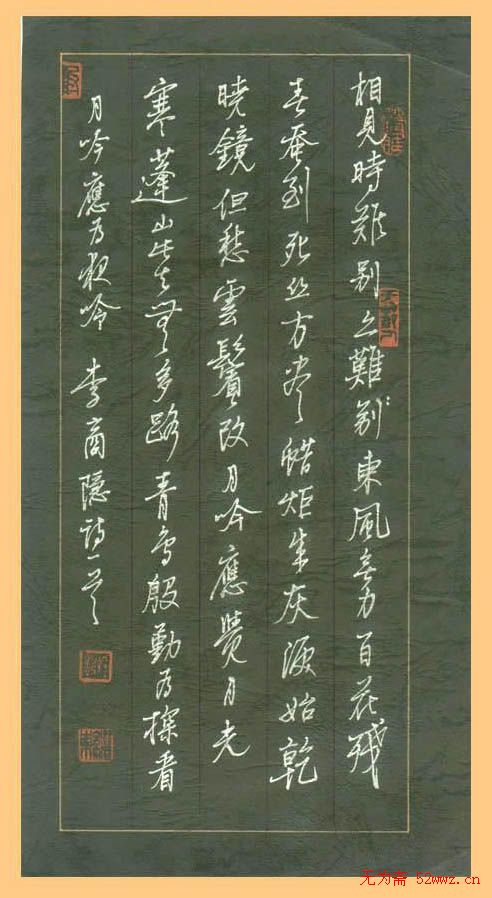 相見時难别亦難别東風無力百花殘
春蚕到死丝方尽蜡炬成灰淚始乾
曉鏡但愁雲鬢改月吟應覺月光
寒蓬山此去無多路青鸟殷勤为探看
月吟應为夜吟 李商隐詩一首
无为斋 52wwz.cn